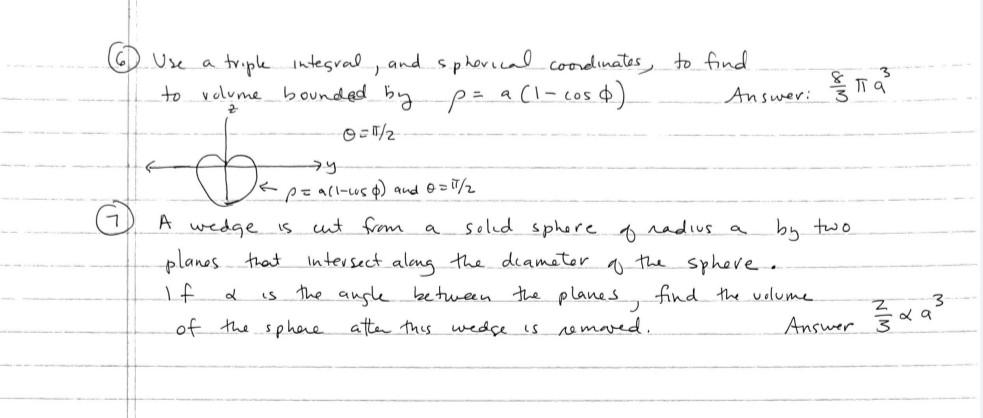 ⑥ Use a triple integral, and spherical coordinates, to find
to volume bounded by ρ = a(1-cos φ) Answer: 8/3 π a³
z
θ = π/2
y
← ρ = a(1-cos φ) and θ = π/2
⑦ A wedge is cut from a solid sphere of radius a by two
planes that intersect along the diameter of the sphere.
If α is the angle between the planes, find the volume
of the sphere after this wedge is removed. Answer 2/3 α a³